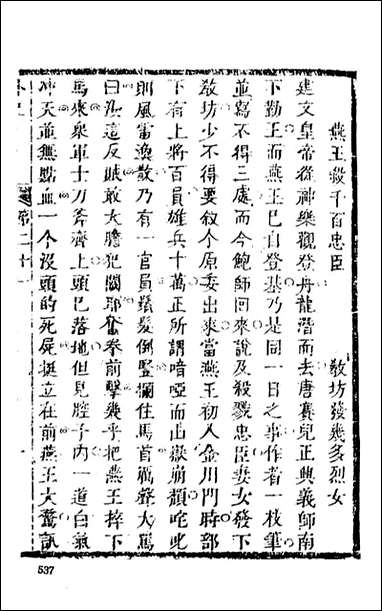 燕王殺千百忠臣　敎坊發幾多烈女
建文皇帝從神樂觀登舟龍潛而去唐賽兒正興義師南
下勤王而燕王巳自登基乃是同一日之事作者一枝筆
並寫不得三處而今鮑師回來說及殺戮忠臣妻女發下
敎坊少不得要敘个原委出來當燕王初入金川門時部
下有上將百員雄兵十萬正所謂喑啞而山嶽崩頹咤叱
則風雷渙散乃有一官員鬚髮倒竪攔住馬首厲聲大罵
曰汝這反賊敢大膽犯闕耶奮拳前擊幾乎把燕王捽下
馬來衆軍士刀斧齊上頭巳落地但見腔子内一道白氣
冲天並無點血一个沒頭的死屍挺立在前燕王大驚訊
第二十一
537